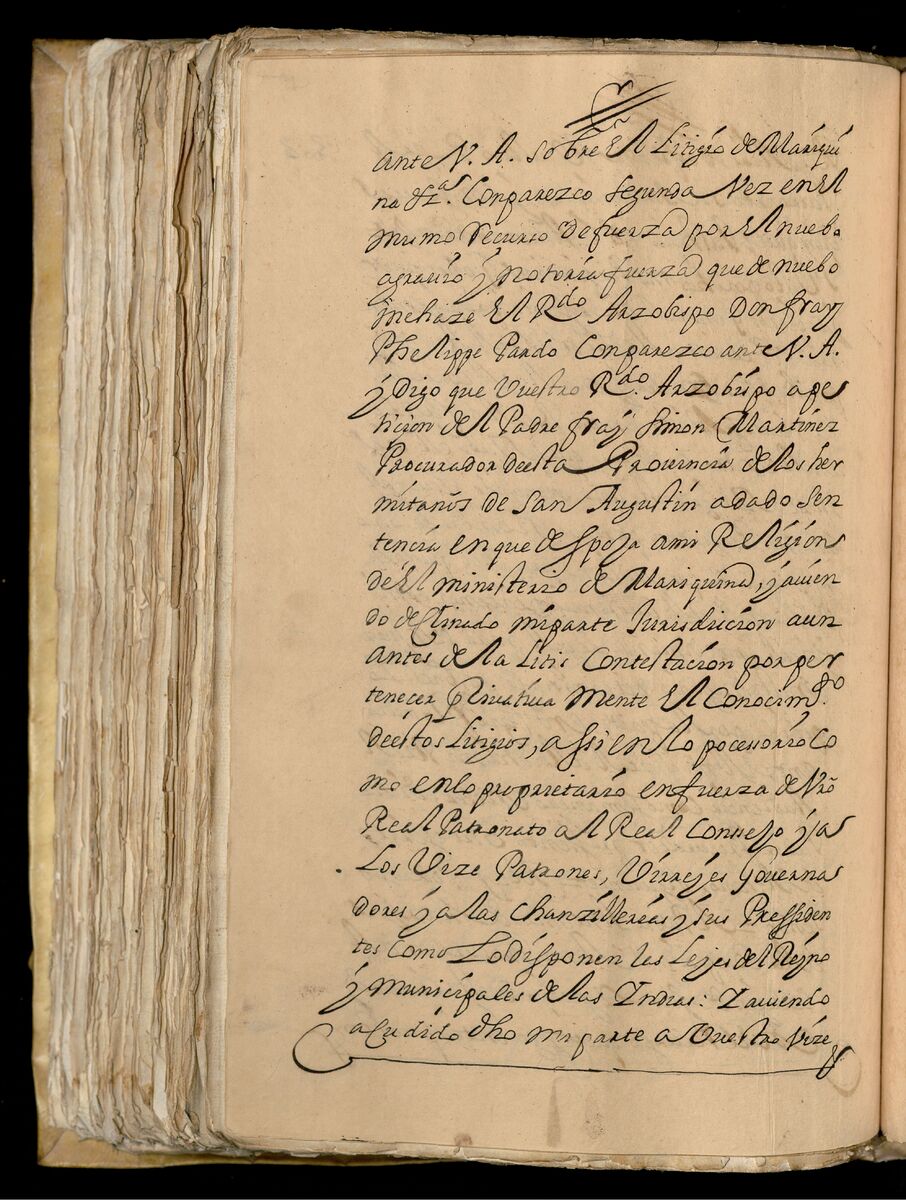 ante V. A. sobre El Litigio de Mariqui
na &za. Conparezco Segunda Vez en El
mismo Recurso de fuerza por El nuebo
agrauio y notoria fuerza que de nuebo
me haze El Rdo Arzobispo Don fray
Phelippe Pardo Conparezco ante V. A.
y Digo que Vuestro Rdo. Arzobispo a pe
ticion del Padre fray Simon Martinez
Procurador de esta Prouincia de los her
mitaños de San Augustin a dado sen
tencia en que despoja a mi Religion
de El ministerio de Mariquina, y auien
do declinado mi parte Jurisdicion aun
antes de la Litis Contestacion por per
tenecer Priuatiua mente El Conocimto.
de estos Litigios, assi en lo pocessorio Co
mo en lo proprietario en fuerza de Vro
Real Patronato al Real Conssejo y a
Los Vize Patrones, Virreyes Gouerna
dores y a las Chanzillerias y sus Pressiden
tes como Lo disponen las Leyes del Reyno
y Municipales de las Indias: Y auiendo
acudido dho mi parte a Vuestro Vize